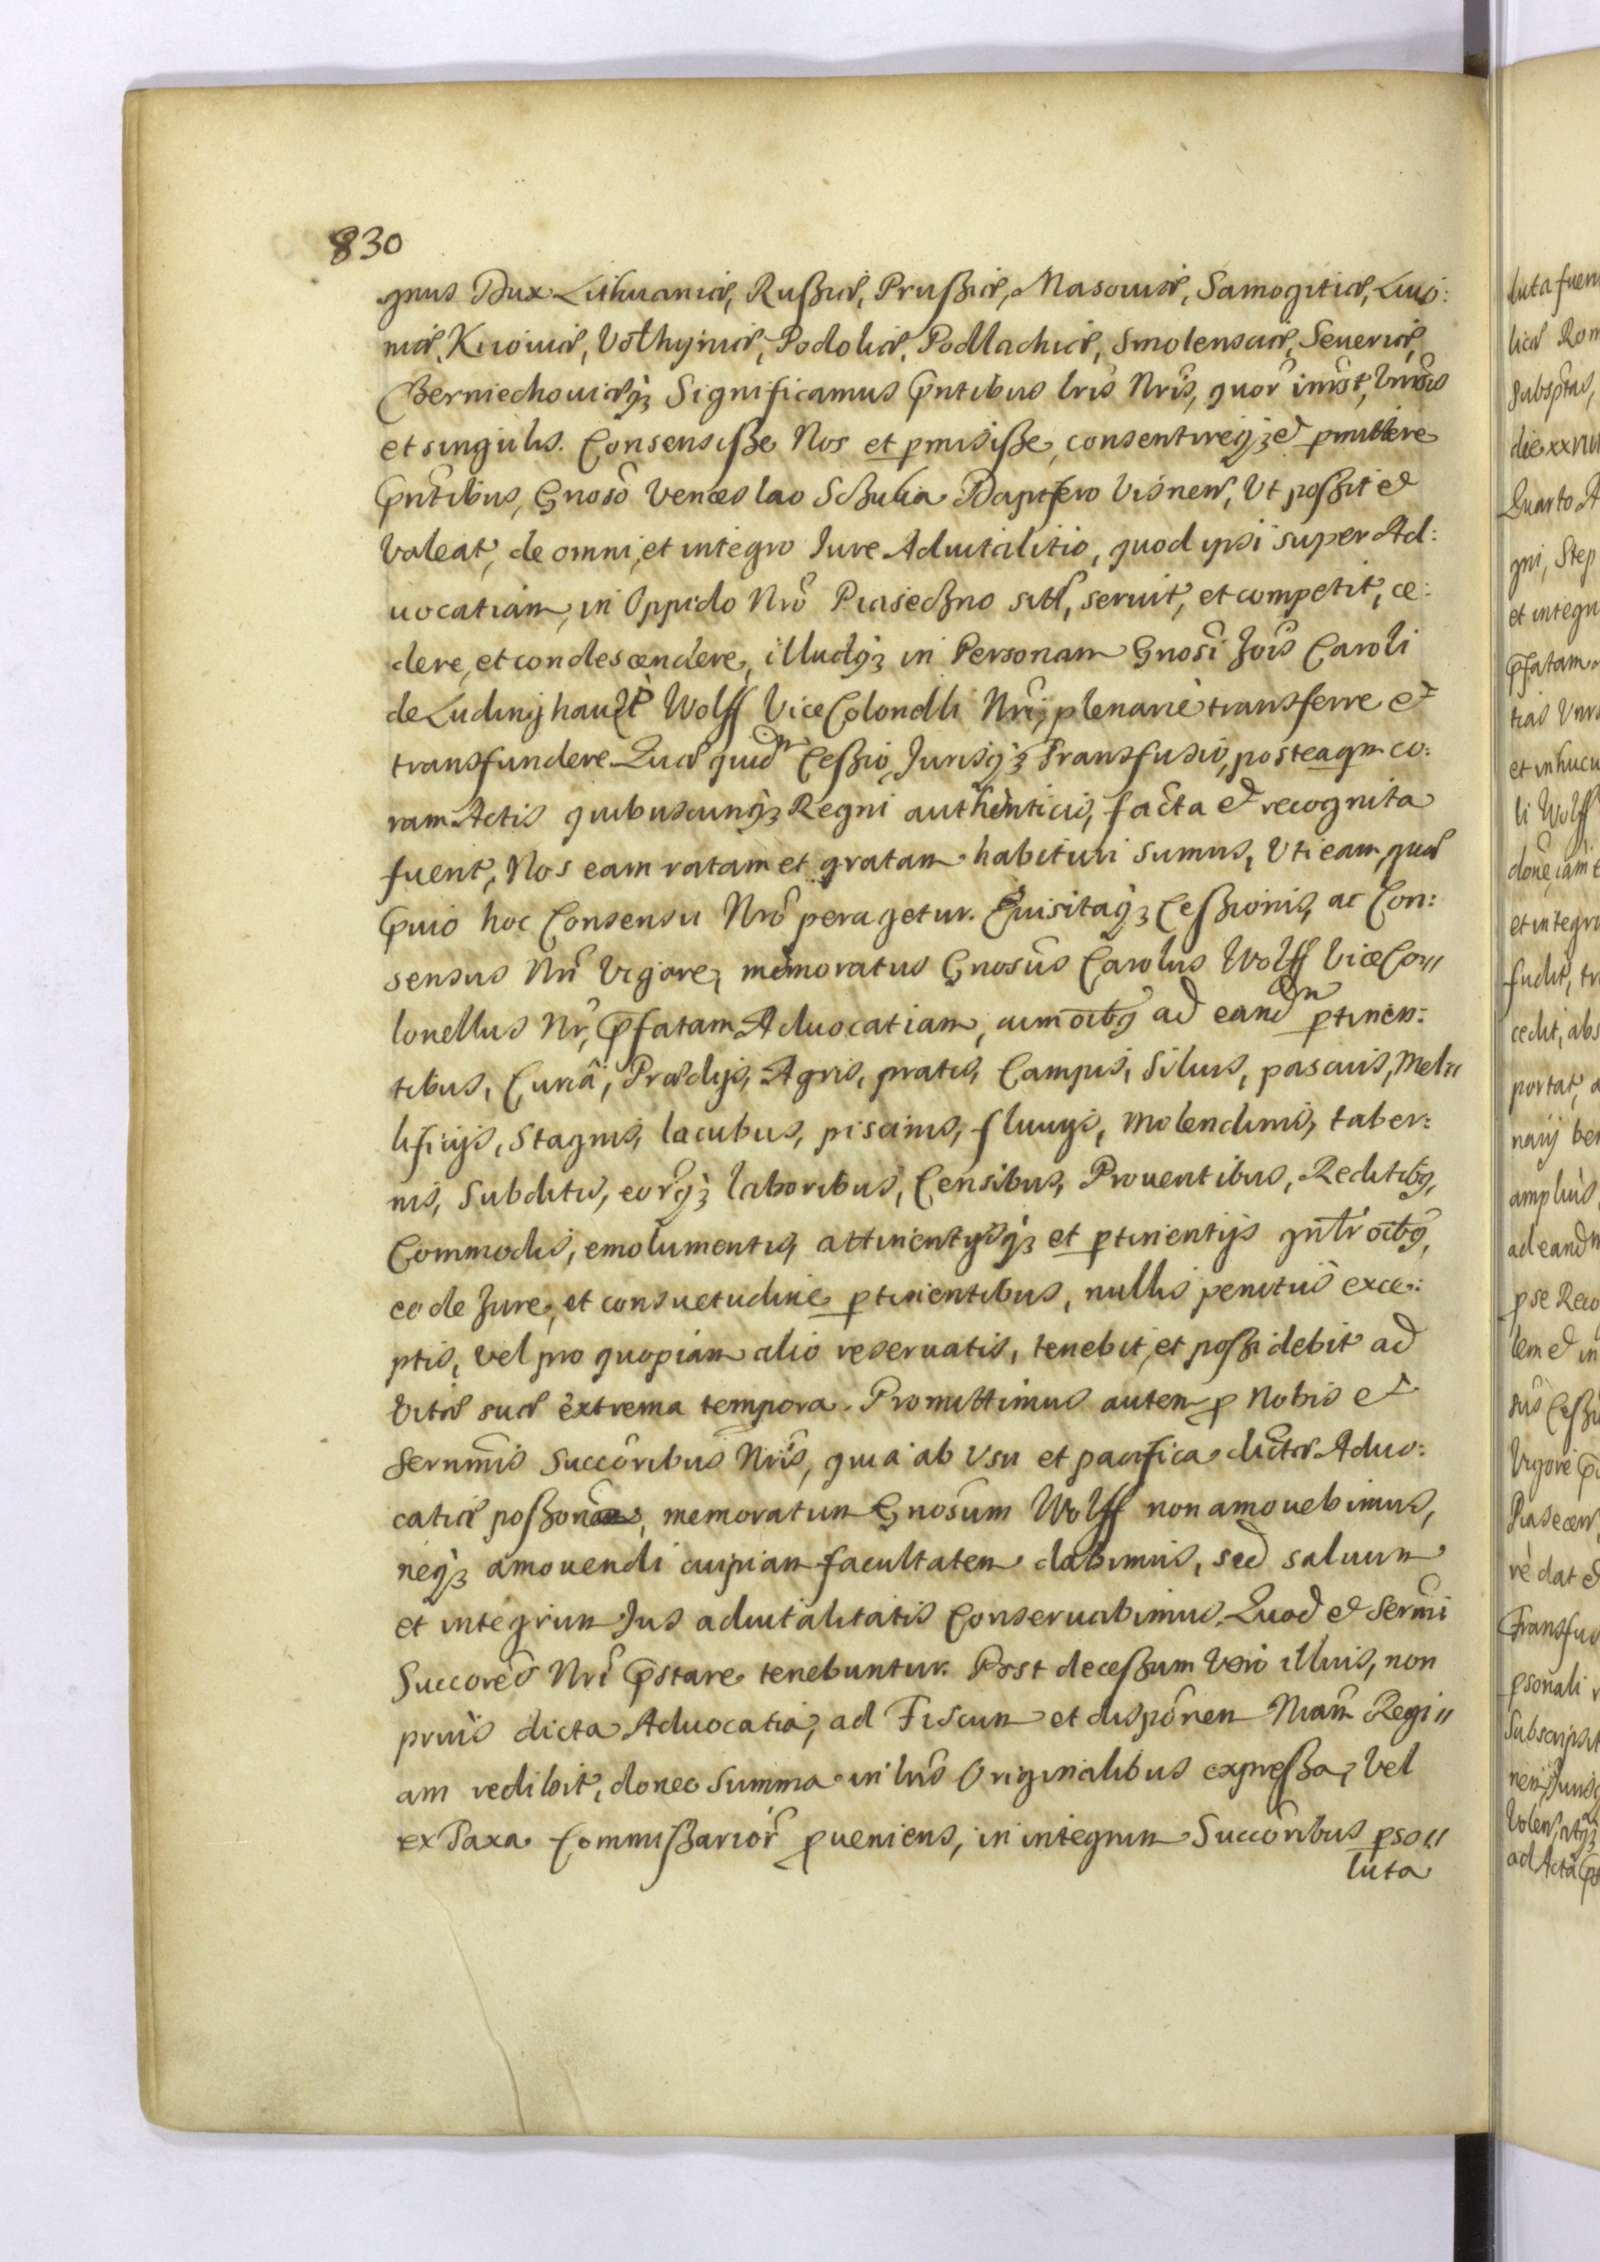 830
gnus Dux Lithuaniæ, Rußiæ, Prußiæ, Masouiæ, Samogitiæ, Liuo:
niæ, Kiiouiæ, Volhyniæ, Podoliæ, Podlachiæ, Smolensciæ, Seueriæ,
Czerniechouiæq3 Significamus p̃ntibus lris Nris, quor̃ inter̃t, Vniũsis
et singulis. Consensiße Nos et pmisiße, consentireq3 et pmittere
p̃ntibus, Gnoso Venceslao Schulia Dapifero Visnen, Vt poßit et
valeat, de omni, et integro Iure Aduitalitio, quod ipsi super Ad:
uocatiam, in Oppido Nro Piaseczno sitt, seruit, et competit, ce:
dere, et condescendere, illudq3 in Personam Gnosi Jois Caroli
de Ludinghauzẽ Wolff Vice Colonelli Nri, plenariè transferre et
transfundere. Quæ quidm Ceßio, Jurisq3 Transfusio, posteaqm co:
ram Actis quibuscunq3 Regni authenticis, facta et recognita
fuerit, Nos eam ratam et gratam habituri sumus, Vti eam, quæ
p̃uio hoc Consensu Nro peragetur. Cuisitaq3 Ceßionis, ac Con:
sensus Nri Vigore, memoratus Gnosus Carolus Wolff Vice Co〃
lonellus Nr, p̃fatam Aduocatiam, cum oibg ad eandm ptinen:
tibus, Curiâ, Prædijs, Agris, pratis, Campis, Siluis, pascuis, Mel〃
lificijs, Stagnis, lacubus, piscinis, fluuijs, Molendinis, taber:
nis, Subditis, eorq3 laboribus, Censibus, Prouentibus, Reditibg,
Commodis, emolumentis, attinentijsq3 et ptinentijs gnlr oibg,
eo de Jure, et consuetudine ptinentibus, nullis penitus exce:
ptis, vel pro quopiam alio reseruatis, tenebit, et poßidebit ad
Vitæ suæ extrema tempora. Promittimus autem p Nobis et
Serenmis Succoribus Nris, quia ab Vsu et pacifica dictæ Aduo:
catiæ poßone, memoratum Gnosum Wolff non amouebimus,
neq3 amouendi cuipiam facultatem dabimus, sed saluum
et integrum Jus aduitalitatis Conseruabimus. Quod et Sermi
Succores Nri p̃stare tenebuntur. Post deceßum vero illius, non
prius dicta Aduocatia, ad Fiscum et disponem Nram Regi〃
am redibit, donec Summa in lris Originalibus expreßa, vel
ex Taxa Commißarior̃ pueniens, in integrum Succoribus pso〃
luta